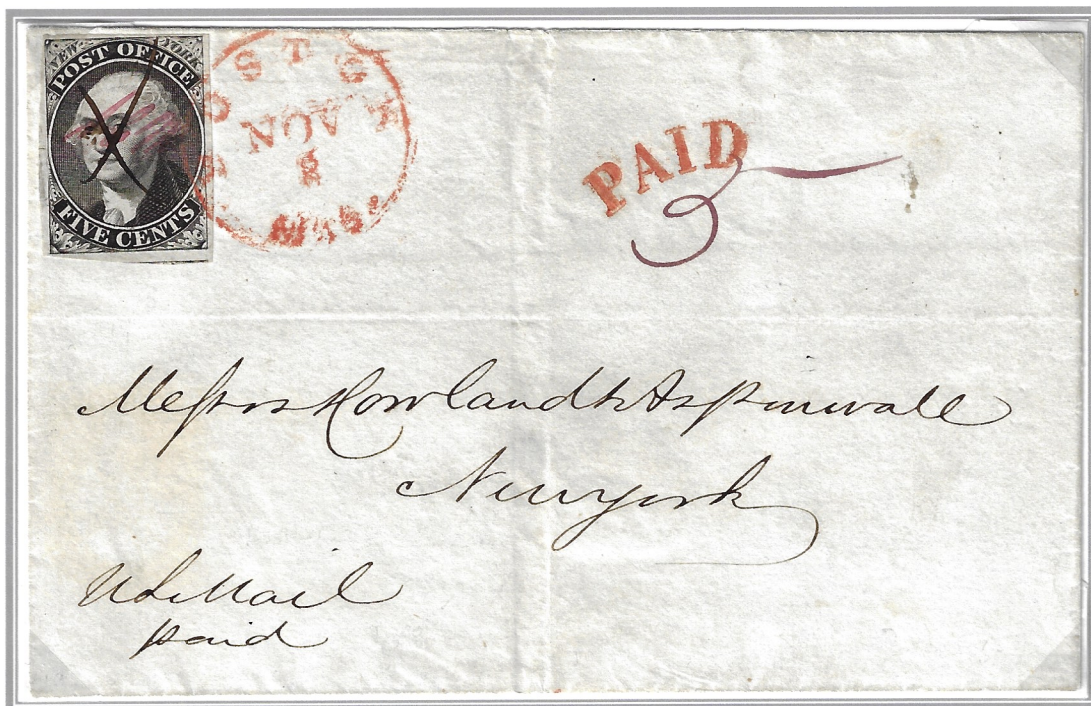 NEW YORK
POST OFFICE
FIVE CENTS
BOSTON
NOV
8
MAS.
PAID
5
Messrs Howland & Aspinwall
New york
U S Mail
paid